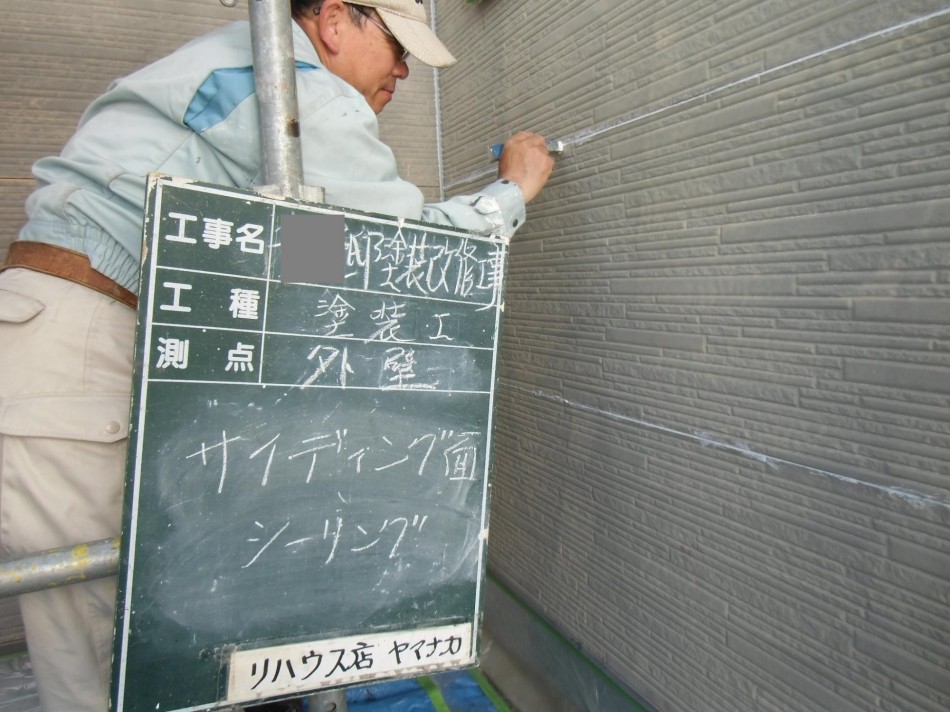 工事名 邸塗装改修工事
工種 塗装工
測点 外壁
サイディング面
シーリング
リハウス店 ヤマナカ